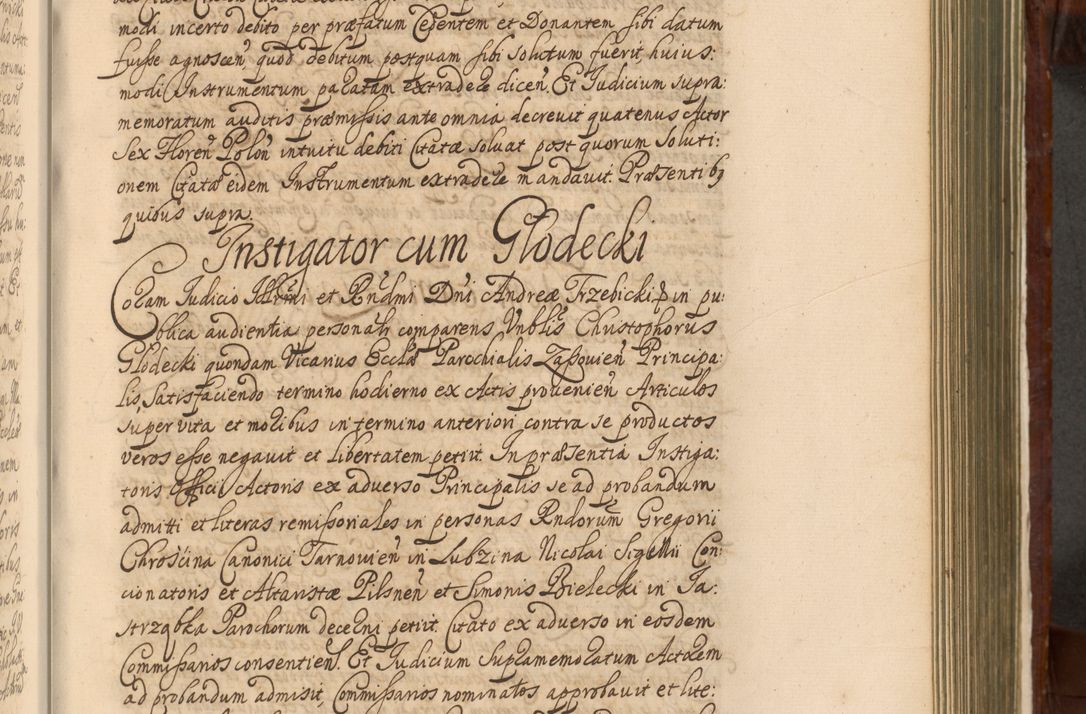 modi incerto debito per præfatum Cedentem et Donantem sibi datum
fuisse agnoscen̄ quod debitum postquam sibi solutum fuerit, huius:
modi Instrumentum paratam extradere dicen̄. Et Judicium supra:
memoratum auditis præmissis ante omnia decrevit quatenus Actor
Sex Floren̄ Polon̄ intuitu debiti Citatæ soluat post quorum soluti:
onem Citata eidem Instrumentum extradere mandauit. Præsentib9
quibus supra.
Instigator cum Glodecki
Coram Judicio Illrmi et Rndmi Dni Andreæ Trzebicki in pu:
blica audientia personalr comparens Vnblis Christophorus
Glodecki quondam Vicarius Eccl̄æ Parochialis Zassouien̄ Principa:
lis, Satisfaciendo termino hodierno ex Actis prouenien̄ Articulos
super vita et moribus in termino anteriori contra se productos
veros esse negauit et libertatem petiit In præsentia Instiga:
toris Officii Actoris ex adverso Principalis se ad probandum
admitti et literas remissoriales in personas Rndorum Gregorii
Chroscina Canonici Tarnouien̄ in Lubzina Nicolai Sigellii Con:
cionatoris et Altaristæ Pilsnen̄ et Simonis Bielecki in Ja:
strząbka Parochorum decerni petiit. Citato ex adverso in eosdem
Commissarios consentien̄. Et Judicium Supramemoratum Actorem
ad probandum admisit, Commissarios nominatos approbauit et lite: